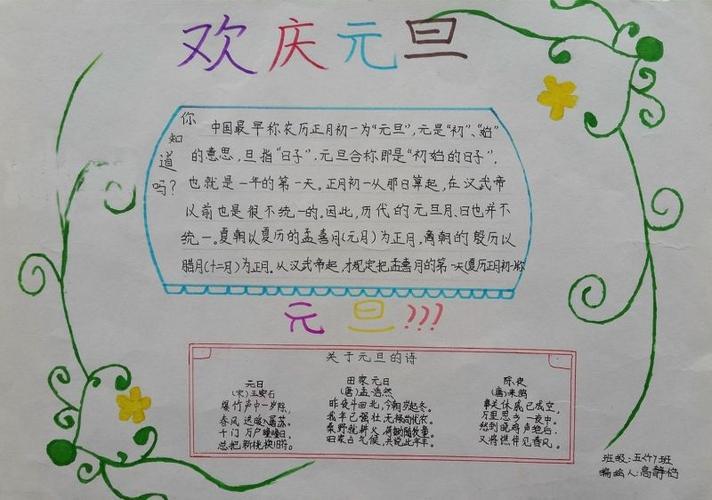 欢庆元旦
你知道吗?
中国最早称农历正月初一为“元旦”,元是“初”、“始”
的意思,旦指“日子”.元旦合称即是“初始的日子”,
也就是一年的第一天。正月初一从那日算起,在汉武帝
以前也是很不统一的。因此,历代的元旦月、日也并不
统一。夏朝以夏历的孟喜月(元月)为正月,商朝的殷历以
腊月(十二月)为正月。从汉武帝起,才规定把孟喜月的第一天(夏历正月初一)称
元旦???
关于元旦的诗
元日
(宋)王安石
爆竹声中一岁除,
春风送暖入屠苏,
千门万户曈曈日,
总把新桃换旧符。
田家元日
(唐)孟浩然
昨夜斗回北,今朝岁起东。
我年已强壮,无禄尚忧农。
桑野就耕父,荷锄随牧童。
田家占气候,共说此年丰。
除夜
(唐)来鹄
事关休戚已成空,
万里思乡一夜中。
愁到晓鸡声绝后,
又将憔悴见春风。
班级:五(7)班
编绘人:高静怡